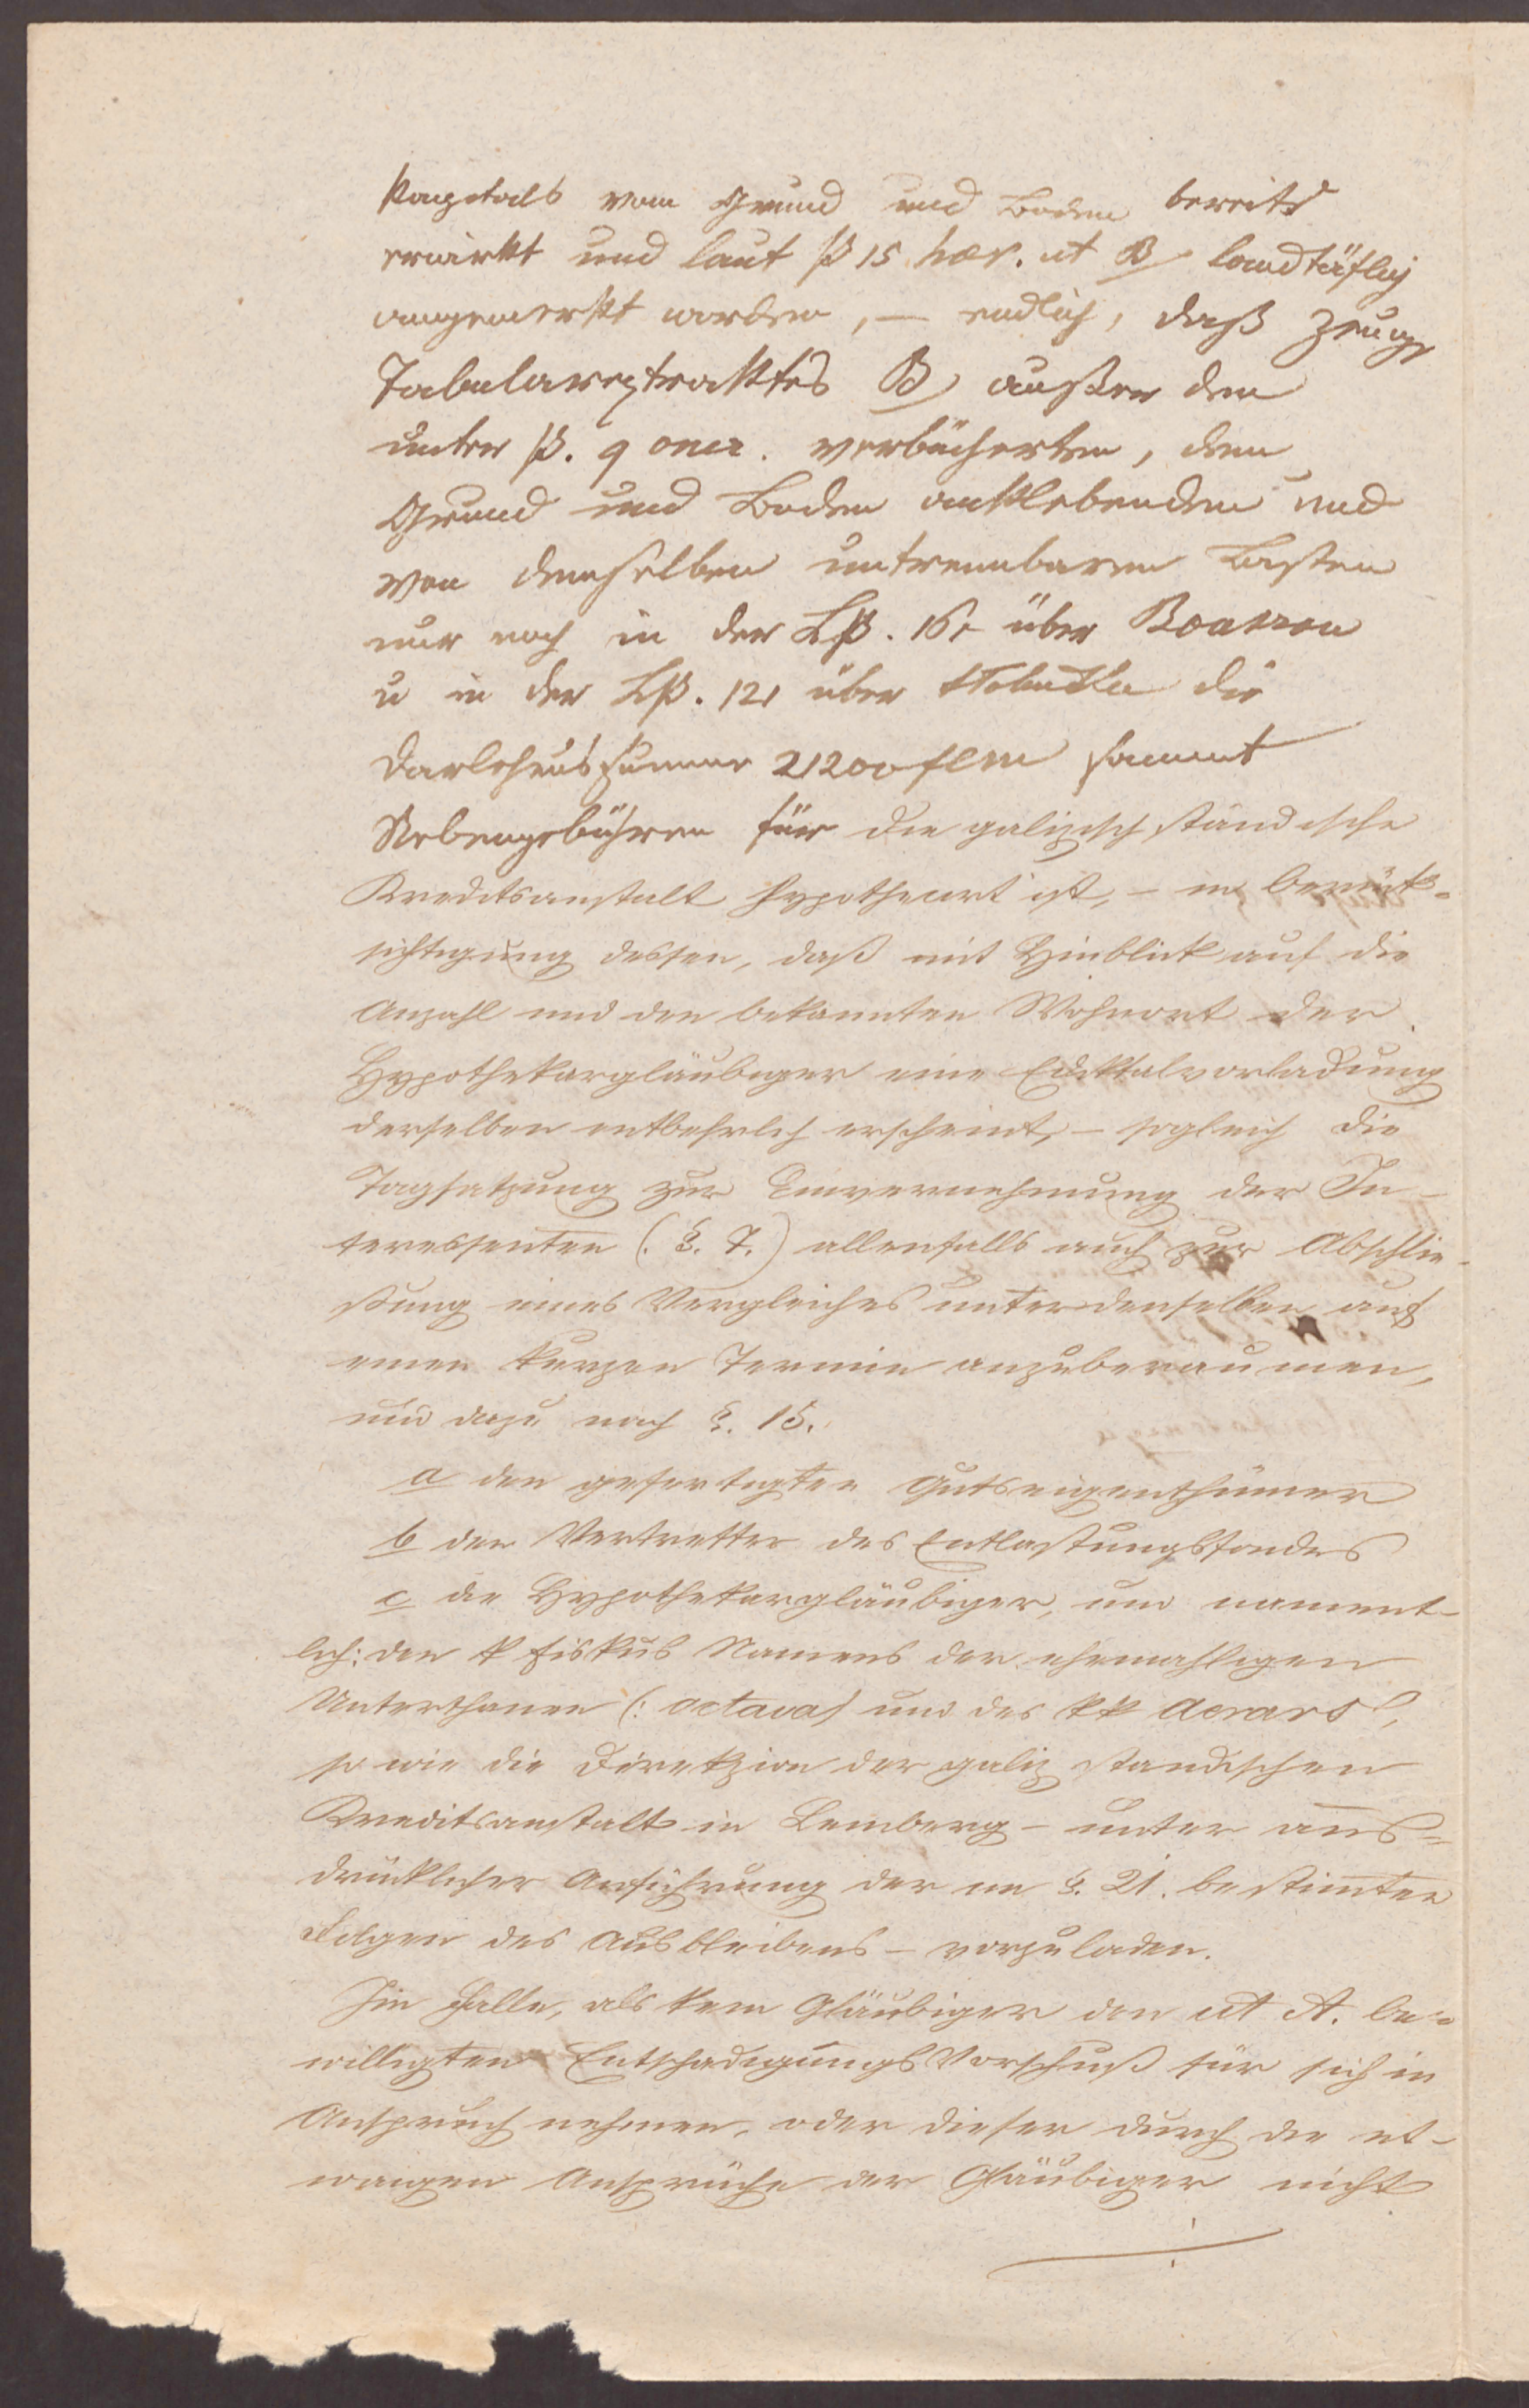 Kapitals vom Grund und Boden bereits
erwirkt und laut P 15 haer. ut B landtäflich
angemerkt worden, – endlich, daß Zeug
Tabularextraktes B außer den
unter P. 9 oner. verbücherten, dem
Grund und Boden anklebenden und
von demselben untrennbaren Lasten
nur noch in der LP. über
u in der LP. 121 über die
Darlehenssumme 21200 f CM sammt
Nebengebühren für die galizisch ständische
Kreditsanstalt hypothecirt ist, – in Berück-
sichtigung dessen, daß mit Hinblick auf die
Anzahl und den bekannten Wohnort der
Hypothekargläubiger eine Ediktalvorladung
derselben entbehrlich erscheint, – sogleich die
Tagsatzung zur Einvernehmung der In-
teressenten (: §. 7.) allenfalls auch zur Abschlie-
ßung eines Vergleiches unter denselben auf
einen kurzen Termin anzuberaumen,
und dazu nach §. 15.
a den gefertigten Gutseigenthümer
b den Vertretter des Entlastungsfondes
c die Hypothekargläubiger, und nament-
lich: den k Fiskus Namens der ehemahligen
Unterthanen (: octava) und des kk Aerars,
so wie die Direkzion der galiz ständischen
Kreditsanstalt in Lemberg – unter aus-
drücklicher Anführung der im §. 21. bestimmten
Folgen des Ausbleibens – vorzuladen.
Im Falle, als kein Gläubiger den ut A. be-
willigten Entschädigungs Vorschuß für sich in
Anspruch nehmen, oder dieser durch die et-
waigen Ansprüche der Gläubiger nicht